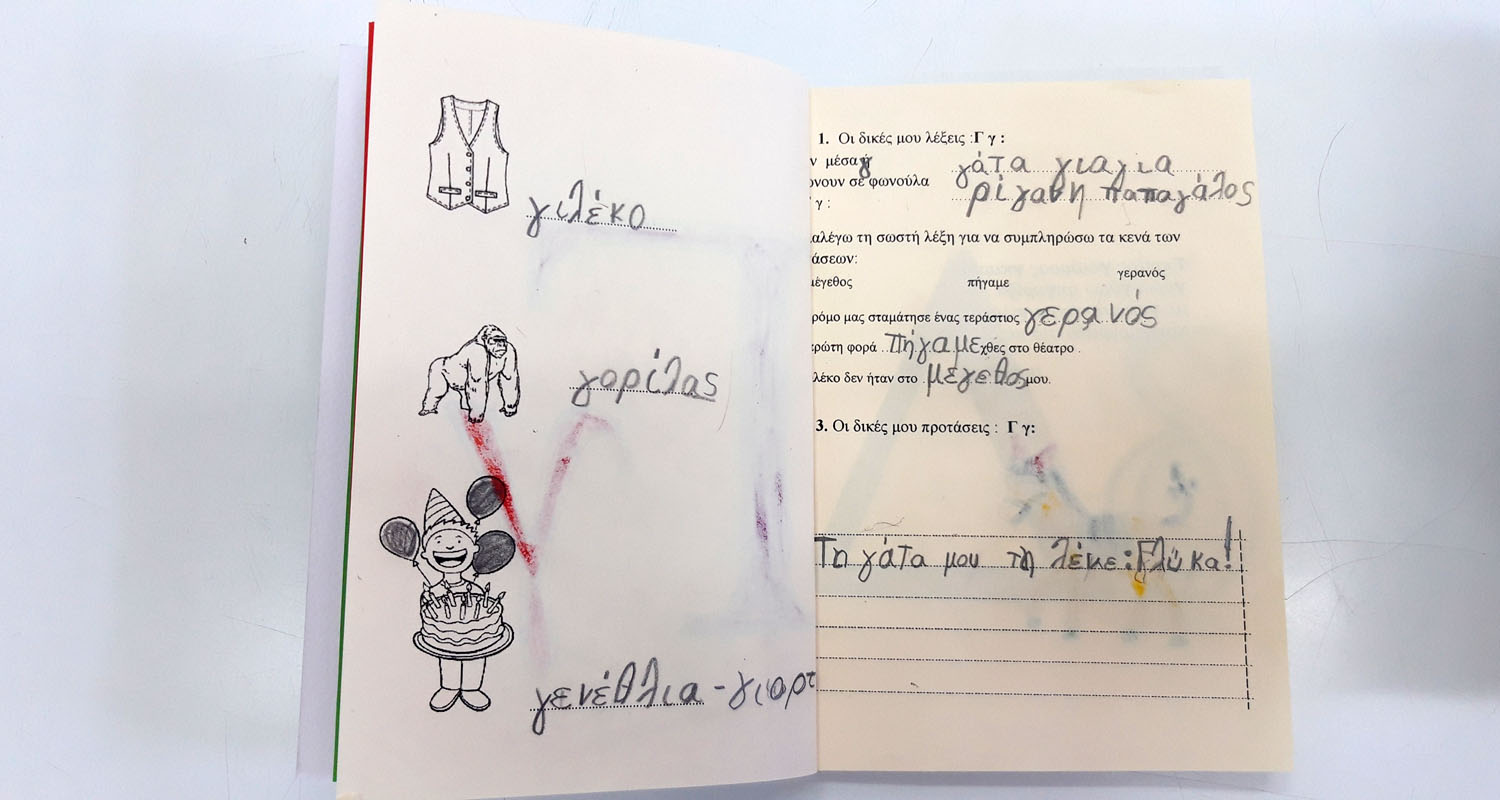 γιλέκο
γορίλας
γενέθλια - γιορτ
1. Οι δικές μου λέξεις :Γ γ :
ν μέσα ή
νουν σε φωνούλα
γ :
γάτα γιαγια
ρίγανη παπαγάλος
αλέγω τη σωστή λέξη για να συμπληρώσω τα κενά των
άσεων:
μέγεθος πήγαμε γερανός
ρόμο μας σταμάτησε ένας τεράστιος γερανός
ρώτη φορά Πήγαμε χθες στο θέατρο .
λέκο δεν ήταν στο μέγεθος μου.
3. Οι δικές μου προτάσεις : Γ γ:
Τη γάτα μου τη λένε: Γλύκα!